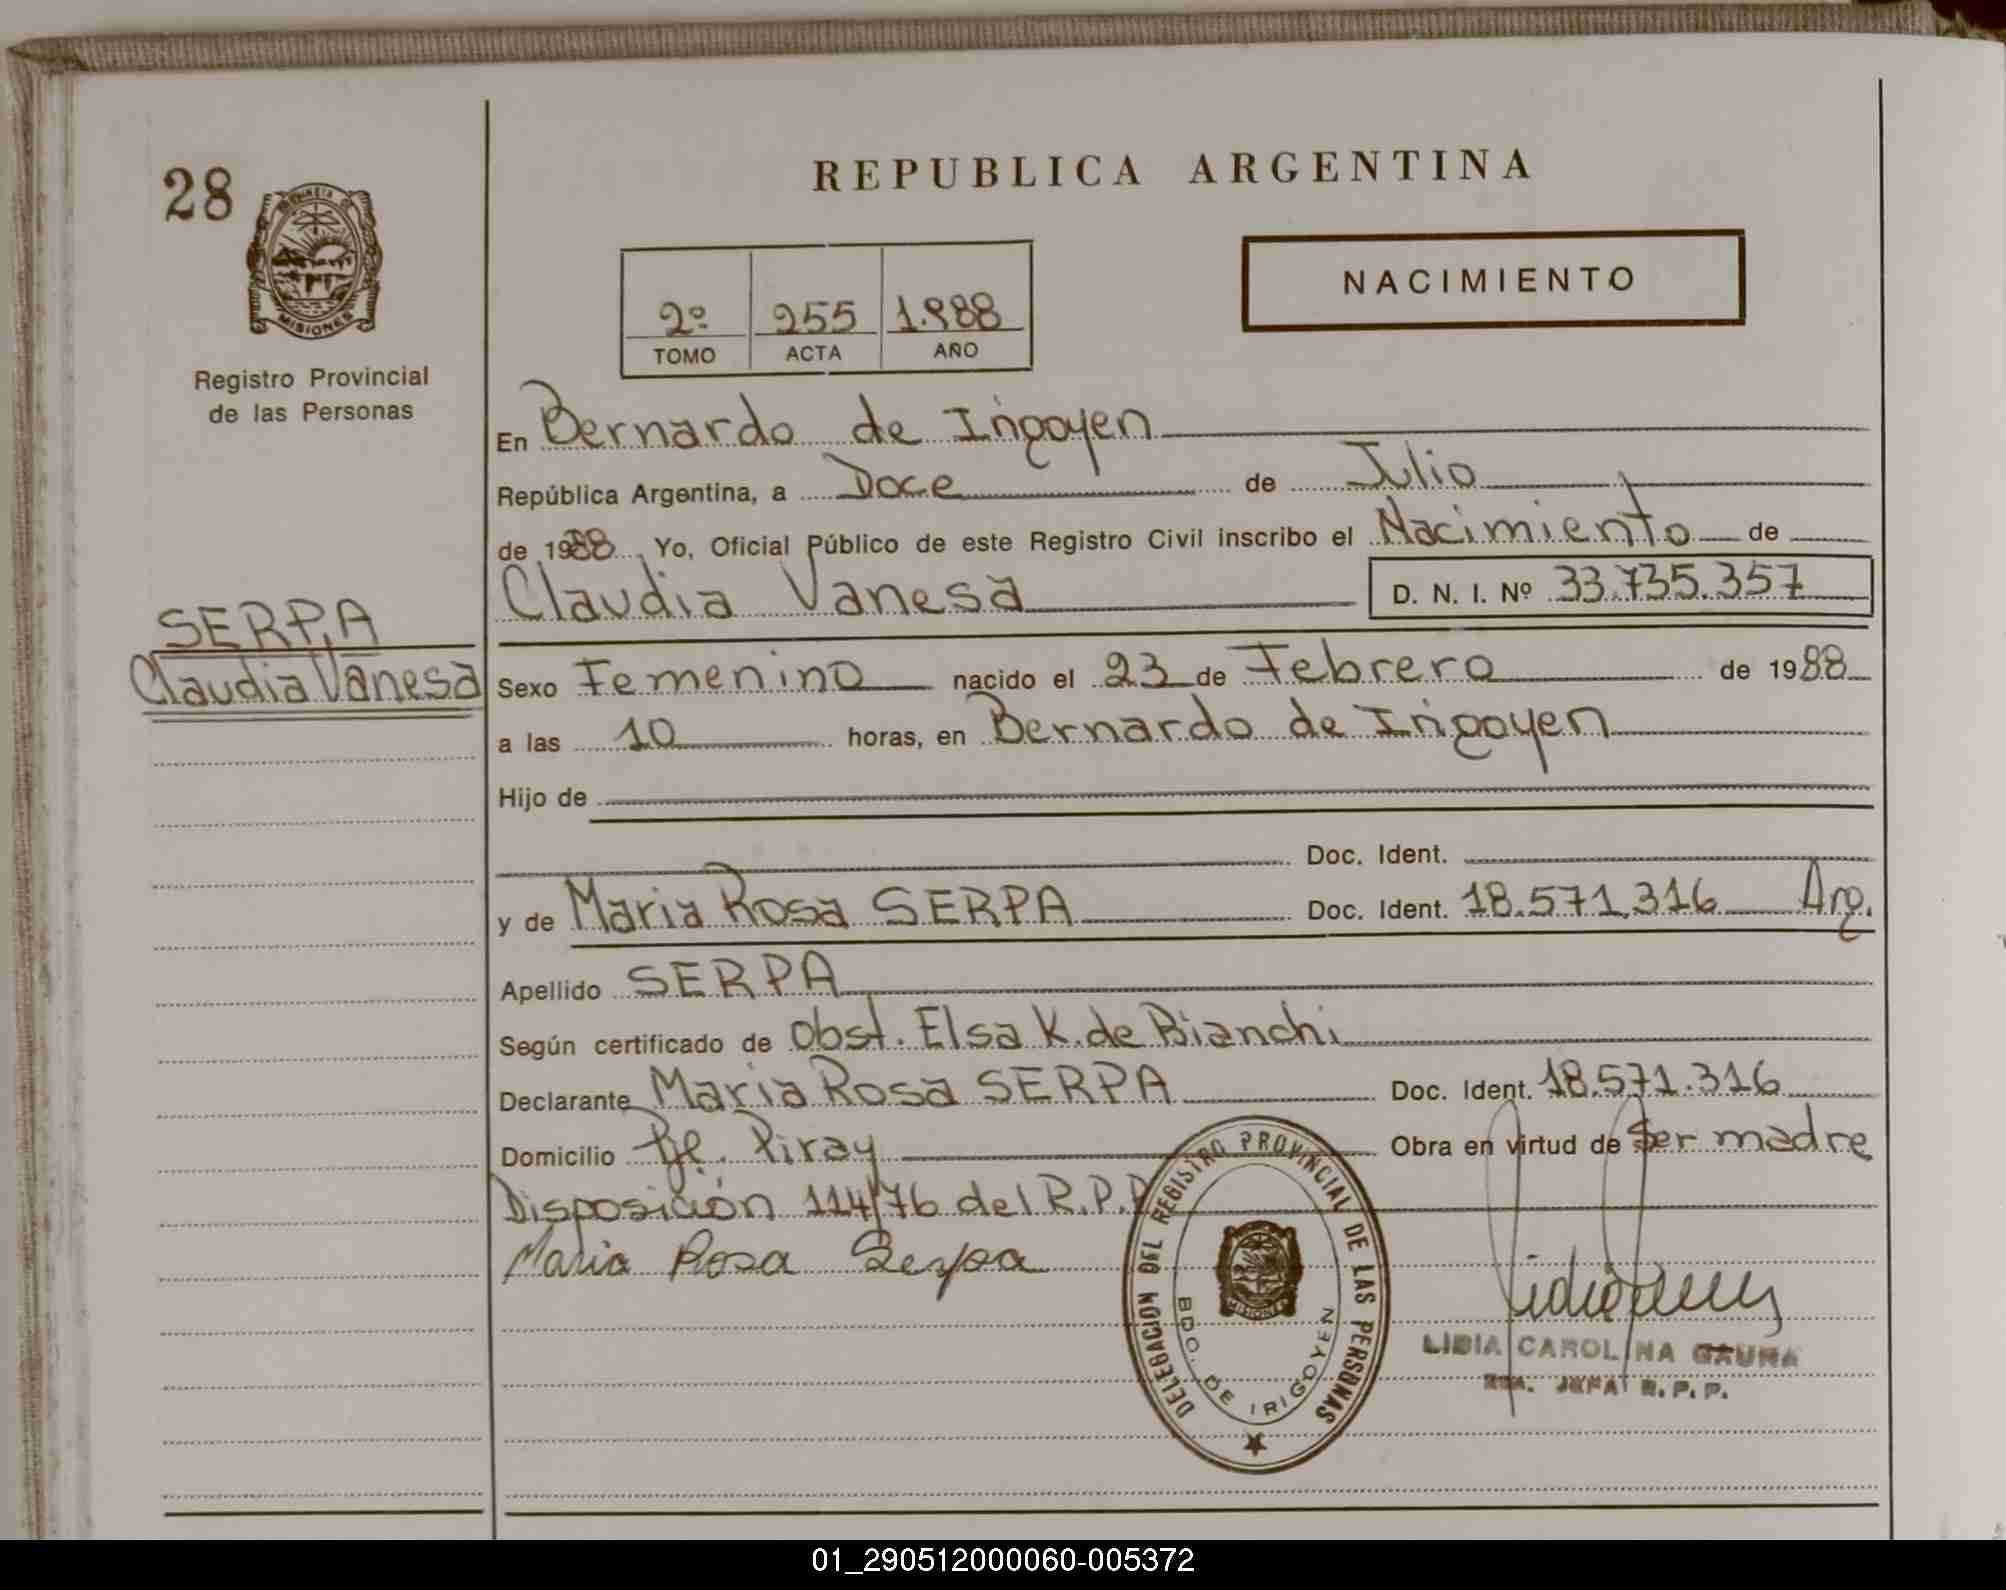 28
PROVINCIA DE
MISIONES
Registro Provincial
de las Personas
SERPA
Claudia Vanesa
REPUBLICA ARGENTINA
2º 255 1.988
TOMO ACTA AÑO
NACIMIENTO
En Bernardo de Irigoyen
República Argentina, a Doce de Julio
de 1988, Yo, Oficial Público de este Registro Civil inscribo el Nacimiento de
Claudia Vanesa D. N. I. Nº 33.735.357
Sexo Femenino nacido el 23 de Febrero de 1988
a las 10 horas, en Bernardo de Irigoyen
Hijo de
Doc. Ident.
y de Maria Rosa SERPA Doc. Ident. 18.571.316 Arg.
Apellido SERPA
Según certificado de Obst. Elsa K. de Bianchi
Declarante Maria Rosa SERPA Doc. Ident. 18.571.316
Domicilio Pje. Piray Obra en virtud de Ser madre
Disposición 114/76 del R.P.P
Maria Rosa Serpa
DELEGACION DEL REGISTRO PROVINCIAL DE LAS PERSONAS
MISIONES
BDO. DE IRIGOYEN
LIDIA CAROLINA GAUNA
JEFA R.P.P.
01_290512000060-005372